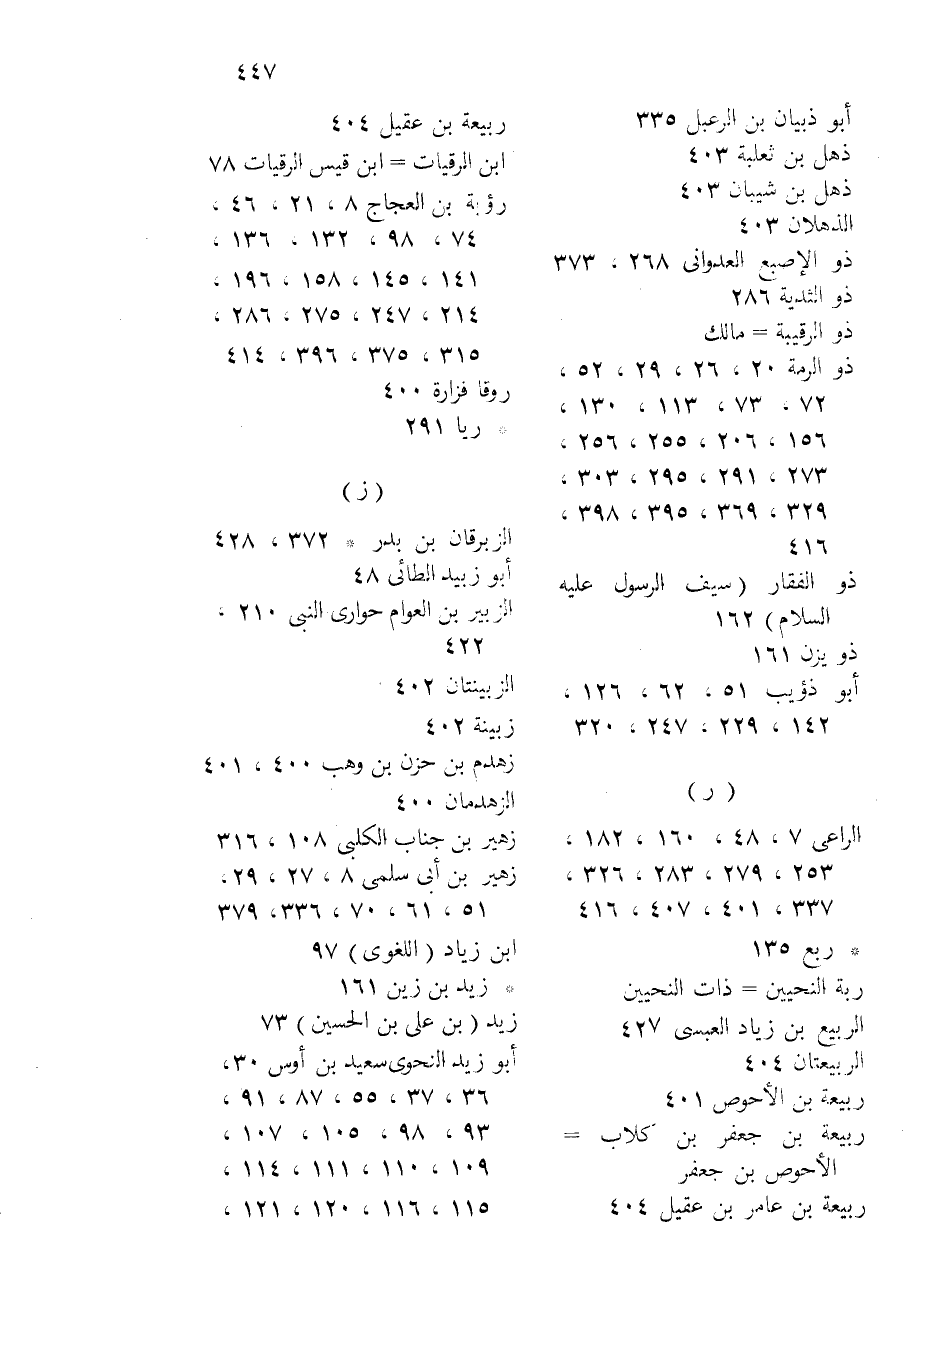 ٤٤٧
أبو ذبيان بن الرعبل ٣٣٥
ذهل بن ثعلبة ٤٠٣
ذهل بن شيبان ٤٠٣
الذهلان ٤٠٣
ذو الإصبع العدوانى ٢٦٨ ، ٣٧٣
ذو الثدية ٢٨٦
ذو الرقيبة = مالك
ذو الرمة ٢٠ ، ٢٦ ، ٢٩ ، ٥٢ ،
٧٢ ، ٧٣ ، ١١٣ ، ١٣٠ ،
١٥٦ ، ٢٠٦ ، ٢٥٥ ، ٢٥٦ ،
٢٧٣ ، ٢٩١ ، ٢٩٥ ، ٣٠٣ ،
٣٢٩ ، ٣٦٩ ، ٣٩٥ ، ٣٩٨ ،
٤١٦
ذو الفقار ( سيف الرسول عليه
السلام ) ١٦٢
ذو يزن ١٦١
أبو ذؤيب ٥١ ، ٦٢ ، ١٢٦ ،
١٤٢ ، ٢٢٩ ، ٢٤٧ ، ٣٢٠
( ر )
الراعى ٧ ، ٤٨ ، ١٦٠ ، ١٨٢ ،
٢٥٣ ، ٢٧٩ ، ٢٨٣ ، ٣٢٦ ،
٣٣٧ ، ٤٠١ ، ٤٠٧ ، ٤١٦
* ربع ١٣٥
ربة النحيين = ذات النحيين
الربيع بن زياد العبسى ٤٢٧
الربيعتان ٤٠٤
ربيعة بن الأحوص ٤٠١
ربيعة بن جعفر بن كلاب =
الأحوص بن جعفر
ربيعة بن عامر بن عقيل ٤٠٤
ربيعة بن عقيل ٤٠٤
ابن الرقيات = ابن قيس الرقيات ٧٨
رؤبة بن العجاج ٨ ، ٢١ ، ٤٦ ،
٧٤ ، ٩٨ ، ١٣٢ ، ١٣٦ ،
١٤١ ، ١٤٥ ، ١٥٨ ، ١٩٦ ،
٢١٤ ، ٢٤٧ ، ٢٧٥ ، ٢٨٦ ،
٣١٥ ، ٣٧٥ ، ٣٩٦ ، ٤١٤
روقا فزارة ٤٠٠
* ريا ٢٩١
( ز )
الزبرقان بن بدر * ٣٧٢ ، ٤٢٨
أبو زبيد الطائى ٤٨
الزبير بن العوام حوارى النبى ٢١٠ ،
٤٢٢
الزبينتان ٤٠٢
زبينة ٤٠٢
زهدم بن حزن بن وهب ٤٠٠ ، ٤٠١
الزهدمان ٤٠٠
زهير بن جناب الكلبى ١٠٨ ، ٣١٦
زهير بن أبى سلمى ٨ ، ٢٧ ، ٢٩ ،
٥١ ، ٦١ ، ٧٠ ، ٣٣٦ ، ٣٧٩
ابن زياد ( اللغوى ) ٩٧
* زيد بن زين ١٦١
زيد ( بن على بن الحسين ) ٧٣
أبو زيد النحوى سعيد بن أوس ٣٠ ،
٣٦ ، ٣٧ ، ٥٥ ، ٨٧ ، ٩١ ،
٩٣ ، ٩٨ ، ١٠٥ ، ١٠٧ ،
١٠٩ ، ١١٠ ، ١١١ ، ١١٤ ،
١١٥ ، ١١٦ ، ١٢٠ ، ١٢١ ،